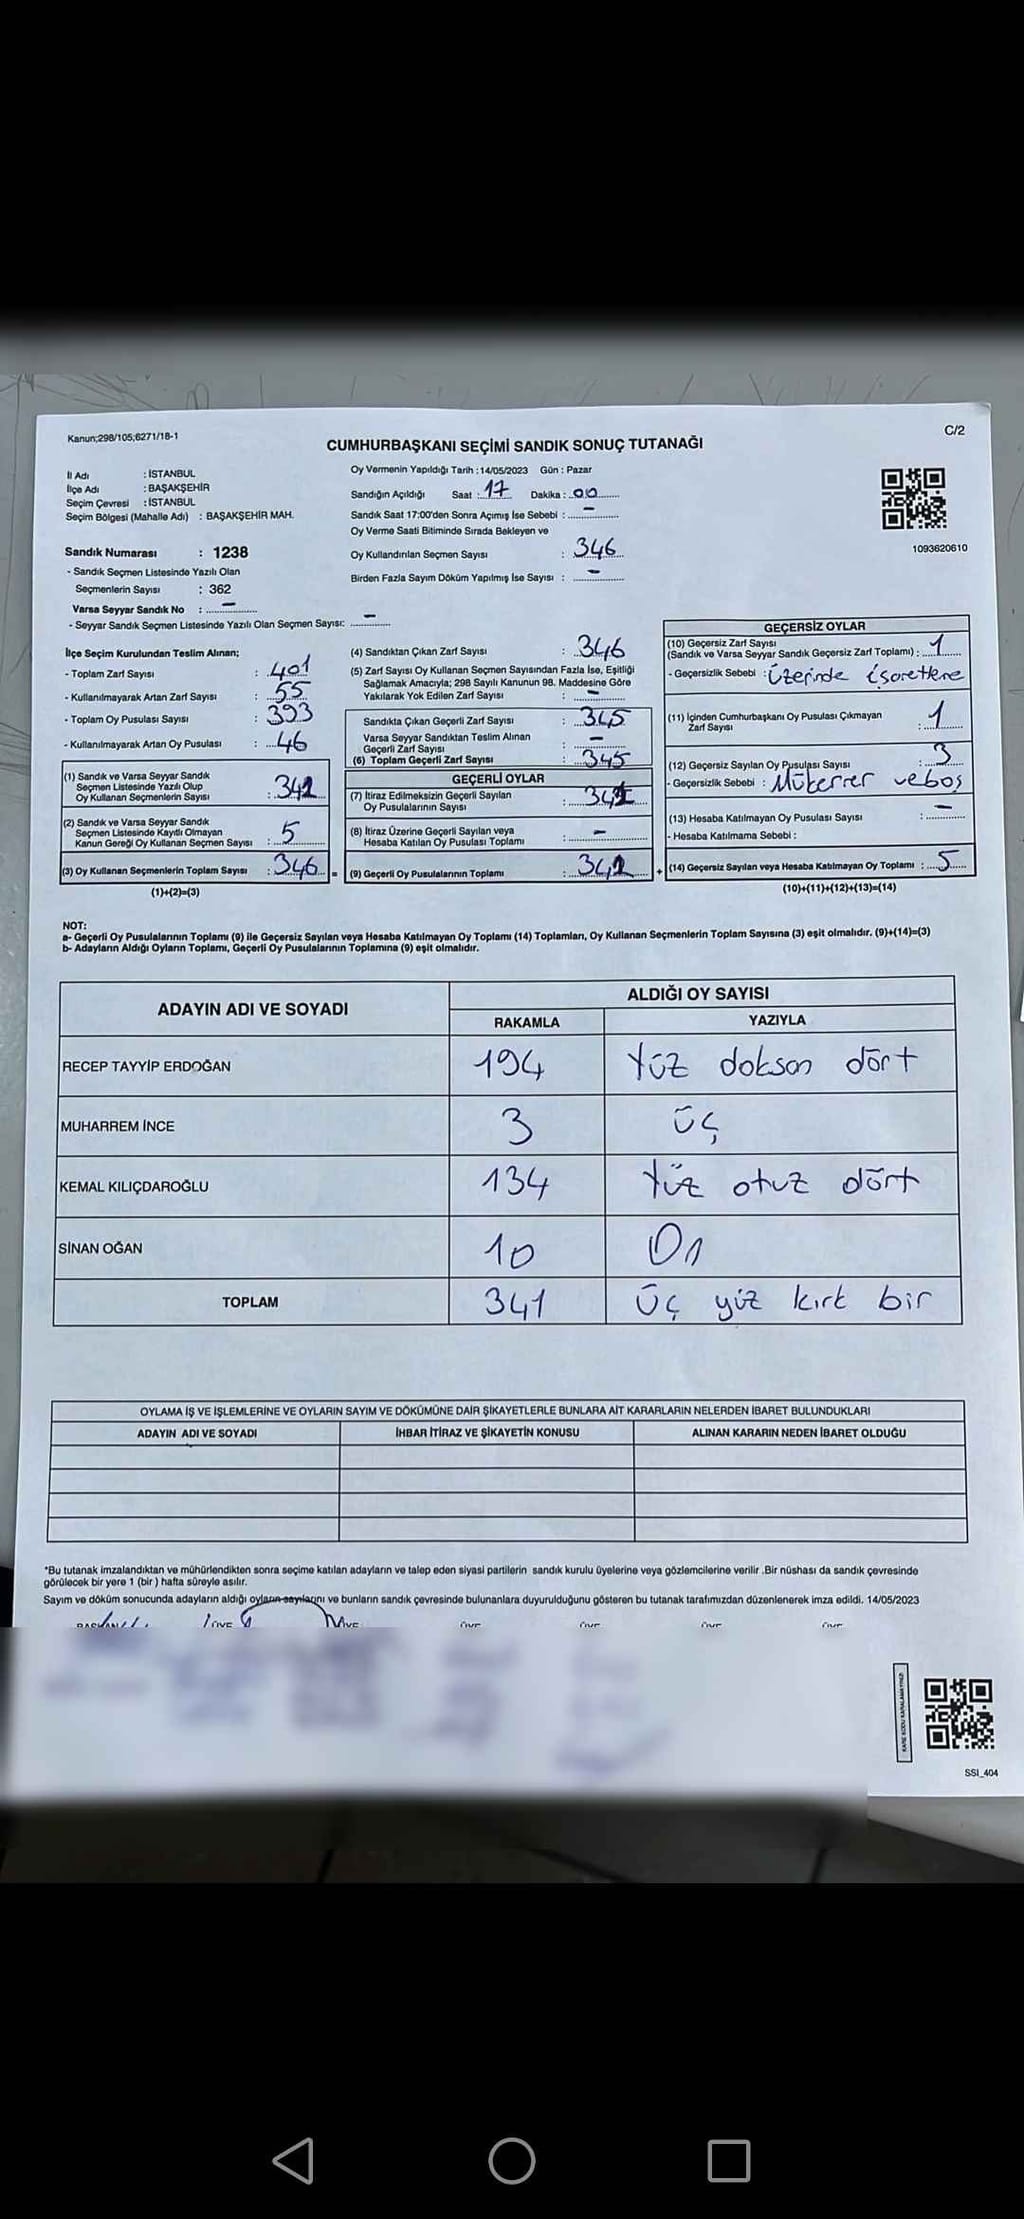 Kanun;298/105;6271/18-1
C/2
CUMHURBAŞKANI SEÇİMİ SANDIK SONUÇ TUTANAĞI
İl Adı : İSTANBUL
İlçe Adı : BAŞAKŞEHİR
Seçim Çevresi : İSTANBUL
Seçim Bölgesi (Mahalle Adı) : BAŞAKŞEHİR MAH.
Oy Vermenin Yapıldığı Tarih :14/05/2023 Gün : Pazar
Sandığın Açıldığı Saat : 17 Dakika : 00
Sandık Saat 17:00'den Sonra Açımış İse Sebebi : -
Oy Verme Saati Bitiminde Sırada Bekleyen ve
Oy Kullandırılan Seçmen Sayısı : 346
Birden Fazla Sayım Döküm Yapılmış İse Sayısı : -
1093620610
Sandık Numarası : 1238
- Sandık Seçmen Listesinde Yazılı Olan
Seçmenlerin Sayısı : 362
Varsa Seyyar Sandık No : -
- Seyyar Sandık Seçmen Listesinde Yazılı Olan Seçmen Sayısı: -
İlçe Seçim Kurulundan Teslim Alınan;
- Toplam Zarf Sayısı : 401
- Kullanılmayarak Artan Zarf Sayısı : 55
- Toplam Oy Pusulası Sayısı : 393
- Kullanılmayarak Artan Oy Pusulası : 46
(1) Sandık ve Varsa Seyyar Sandık
Seçmen Listesinde Yazılı Olup
Oy Kullanan Seçmenlerin Sayısı : 341
(2) Sandık ve Varsa Seyyar Sandık
Seçmen Listesinde Kayıtlı Olmayan
Kanun Gereği Oy Kullanan Seçmen Sayısı : 5
(3) Oy Kullanan Seçmenlerin Toplam Sayısı : 346
(1)+(2)=(3)
(4) Sandıktan Çıkan Zarf Sayısı : 346
(5) Zarf Sayısı Oy Kullanan Seçmen Sayısından Fazla İse, Eşitliği
Sağlamak Amacıyla; 298 Sayılı Kanunun 98. Maddesine Göre
Yakılarak Yok Edilen Zarf Sayısı : -
Sandıkta Çıkan Geçerli Zarf Sayısı : 345
Varsa Seyyar Sandıktan Teslim Alınan
Geçerli Zarf Sayısı : -
(6) Toplam Geçerli Zarf Sayısı : 345
GEÇERLİ OYLAR
(7) İtiraz Edilmeksizin Geçerli Sayılan
Oy Pusulalarının Sayısı : 341
(8) İtiraz Üzerine Geçerli Sayılan veya
Hesaba Katılan Oy Pusulası Toplamı : -
(9) Geçerli Oy Pusulalarının Toplamı : 341
GEÇERSİZ OYLAR
(10) Geçersiz Zarf Sayısı
(Sandık ve Varsa Seyyar Sandık Geçersiz Zarf Toplamı) : 1
- Geçersizlik Sebebi : Üzerinde işaretlene
(11) İçinden Cumhurbaşkanı Oy Pusulası Çıkmayan
Zarf Sayısı : 1
(12) Geçersiz Sayılan Oy Pusulası Sayısı : 3
- Geçersizlik Sebebi : Mükerrer ve boş
(13) Hesaba Katılmayan Oy Pusulası Sayısı : -
- Hesaba Katılmama Sebebi :
(14) Geçersiz Sayılan veya Hesaba Katılmayan Oy Toplamı : 5
(10)+(11)+(12)+(13)=(14)
NOT:
a- Geçerli Oy Pusulalarının Toplamı (9) ile Geçersiz Sayılan veya Hesaba Katılmayan Oy Toplamı (14) Toplamları, Oy Kullanan Seçmenlerin Toplam Sayısına (3) eşit olmalıdır. (9)+(14)=(3)
b- Adayların Aldığı Oyların Toplamı, Geçerli Oy Pusulalarının Toplamına (9) eşit olmalıdır.
ADAYIN ADI VE SOYADI
ALDIĞI OY SAYISI
RAKAMLA YAZIYLA
RECEP TAYYİP ERDOĞAN 194 Yüz doksan dört
MUHARREM İNCE 3 üç
KEMAL KILIÇDAROĞLU 134 Yüz otuz dört
SİNAN OĞAN 10 On
TOPLAM 341 Üç yüz kırk bir
OYLAMA İŞ VE İŞLEMLERİNE VE OYLARIN SAYIM VE DÖKÜMÜNE DAİR ŞİKAYETLERLE BUNLARA AİT KARARLARIN NELERDEN İBARET BULUNDUKLARI
ADAYIN ADI VE SOYADI İHBAR İTİRAZ VE ŞİKAYETİN KONUSU ALINAN KARARIN NEDEN İBARET OLDUĞU
*Bu tutanak imzalandıktan ve mühürlendikten sonra seçime katılan adayların ve talep eden siyasi partilerin sandık kurulu üyelerine veya gözlemcilerine verilir .Bir nüshası da sandık çevresinde
görülecek bir yere 1 (bir ) hafta süreyle asılır.
Sayım ve döküm sonucunda adayların aldığı oyların sayılarını ve bunların sandık çevresinde bulunanlara duyurulduğunu gösteren bu tutanak tarafımızdan düzenlenerek imza edildi. 14/05/2023
SSI_404